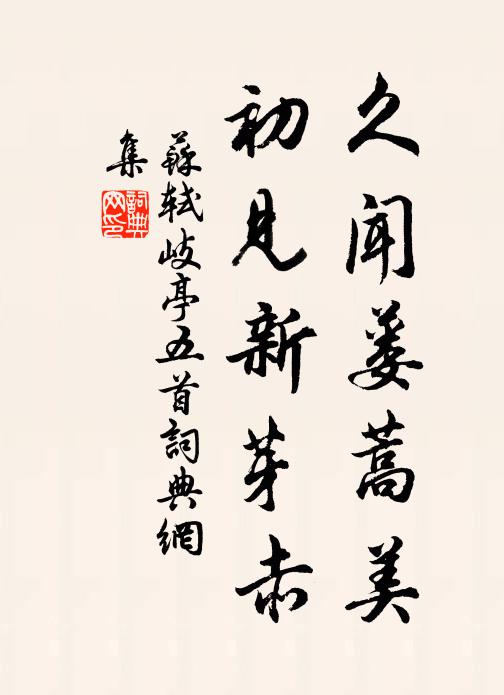 久聞蔞蒿美
初見新芽赤
蘇軾岐亭五首詞典網
集
詞典網印